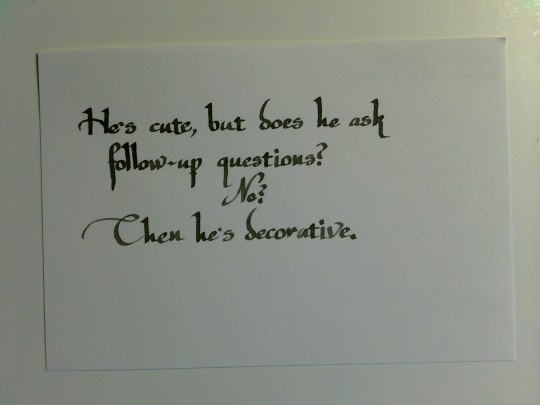 He's cute, but does he ask
follow-up questions?
No?
Then he's decorative.